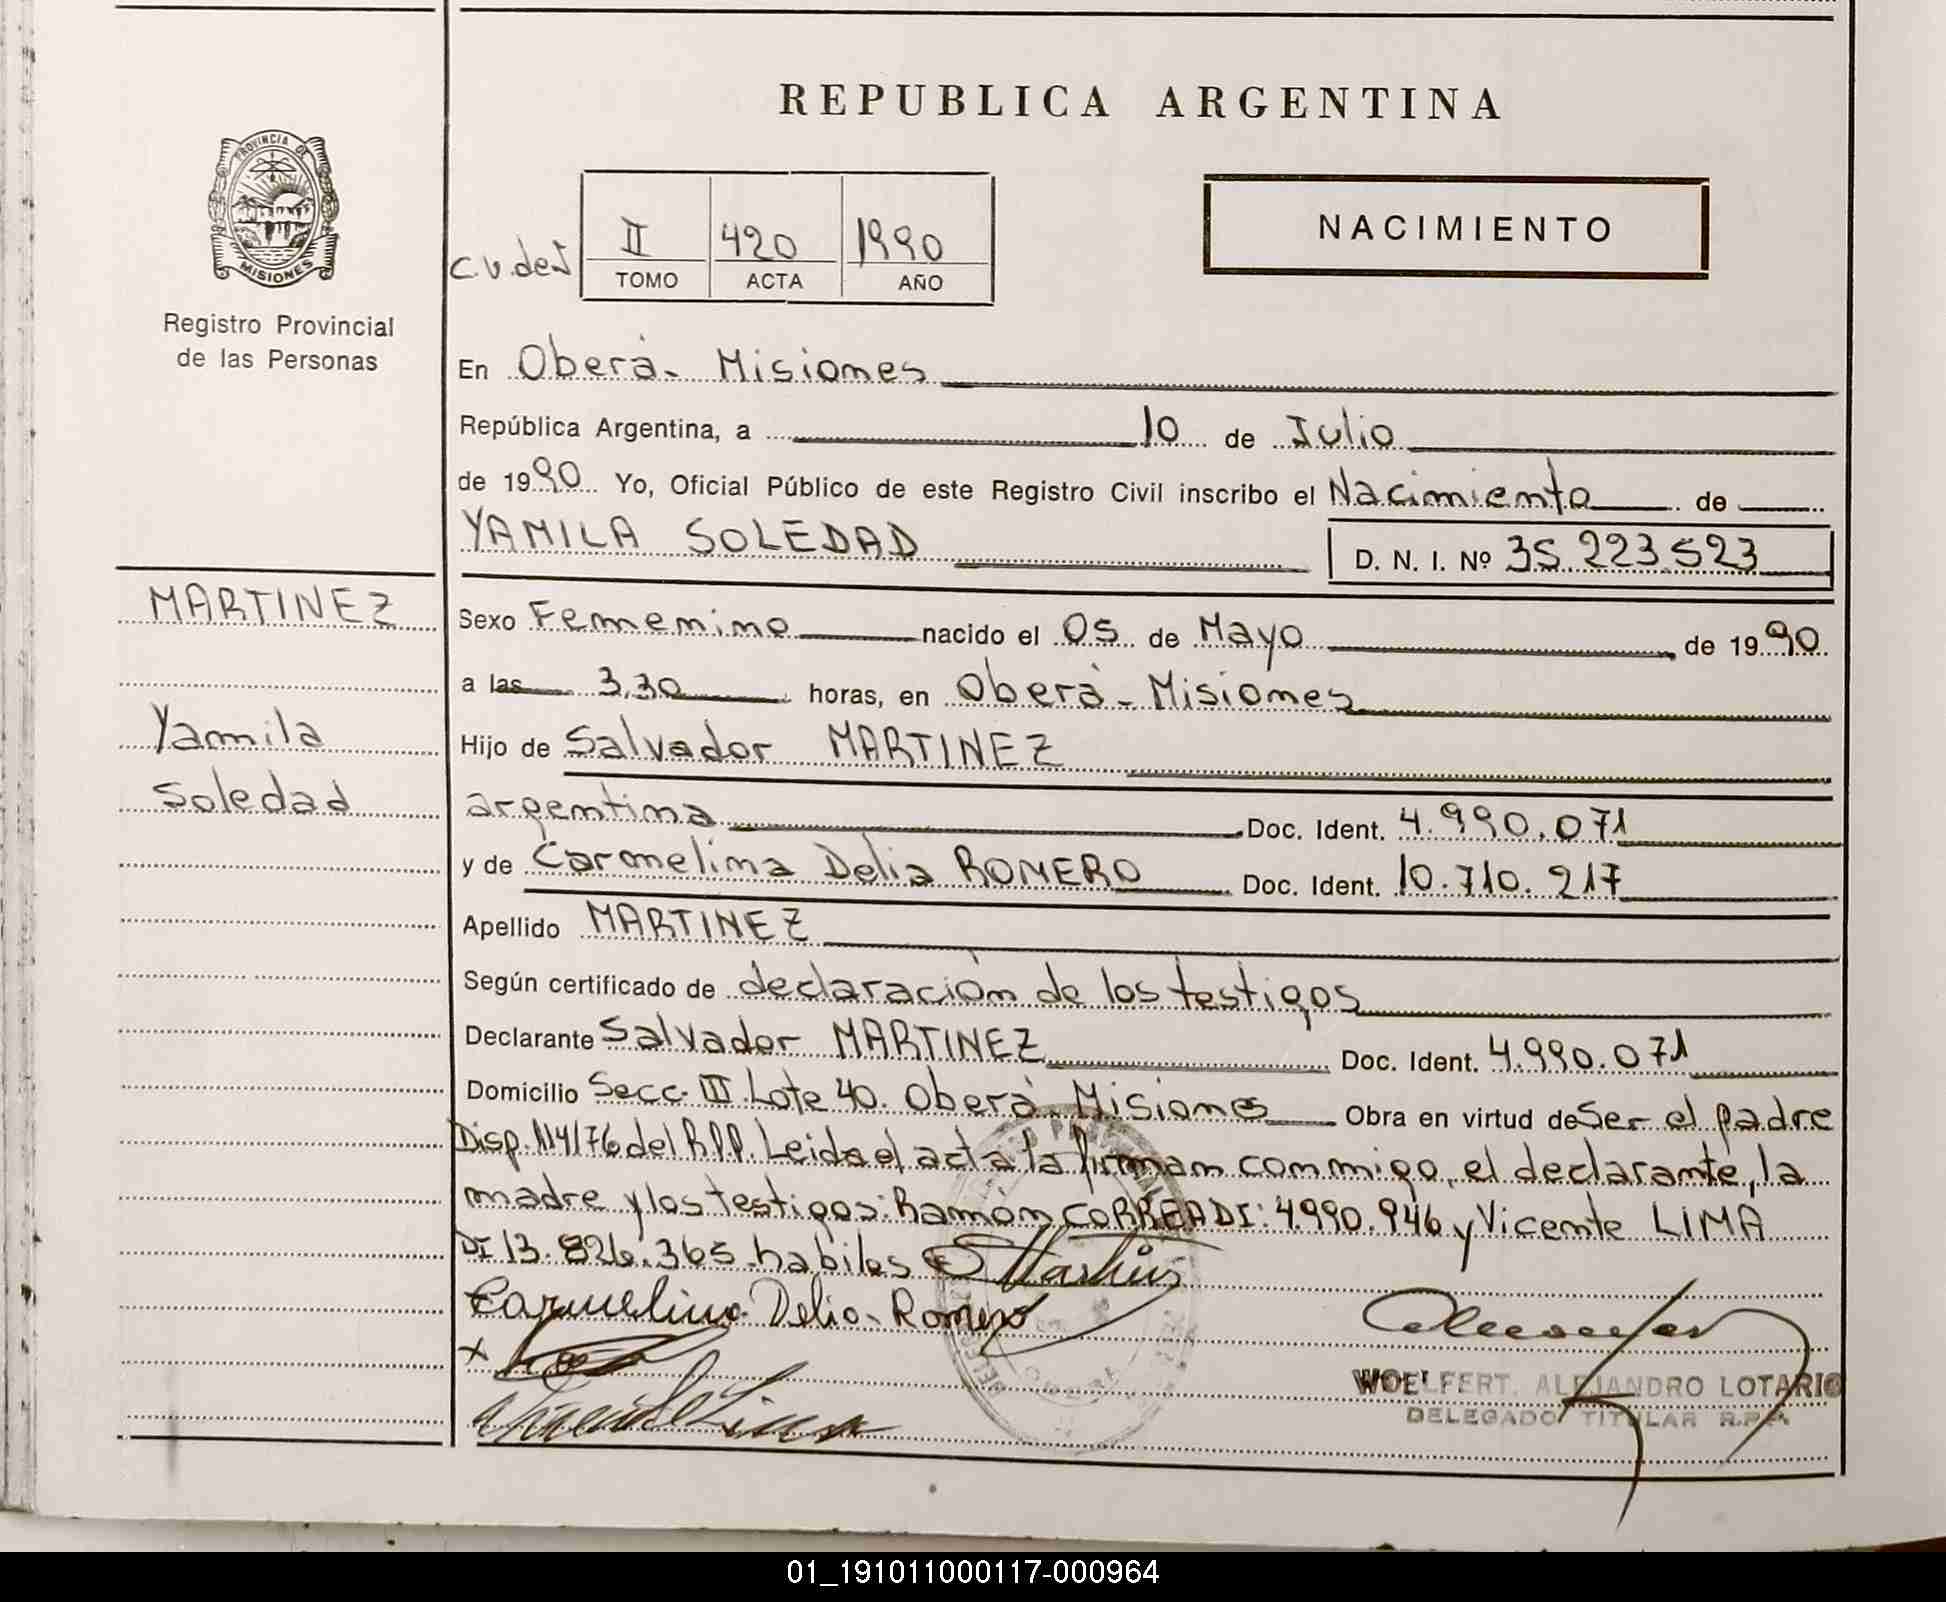 REPUBLICA ARGENTINA
PROVINCIA DE
MISIONES
Registro Provincial
de las Personas
II 420 1990
TOMO ACTA AÑO
NACIMIENTO
En Oberá - Misiones
República Argentina, a 10 de Julio
de 1990 Yo, Oficial Público de este Registro Civil inscribo el Nacimiento de
YAMILA SOLEDAD D. N. I. Nº 35.223.523
MARTINEZ
Yamila
Soledad
Sexo Femenino nacido el 05 de Mayo de 1990
a las 3,30 horas, en Oberá - Misiones
Hijo de Salvador MARTINEZ
argentina Doc. Ident. 4.990.071
y de Carmelina Delia ROMERO Doc. Ident. 10.710.217
Apellido MARTINEZ
Según certificado de declaración de los testigos
Declarante Salvador MARTINEZ Doc. Ident. 4.990.071
Domicilio Secc. III Lote 40. Oberá - Misiones Obra en virtud de Ser el padre
Disp. 114/76 del R.P.P. Leida el acta la firman conmigo, el declarante, la
madre y los testigos: Ramón CORREA DI: 4.990.946 y Vicente LIMA
DI 13.826.365. habiles
Carmelina Delia Romero
WOELFERT, ALEJANDRO LOTARIO
DELEGADO TITULAR R.P.P.
01_191011000117-000964